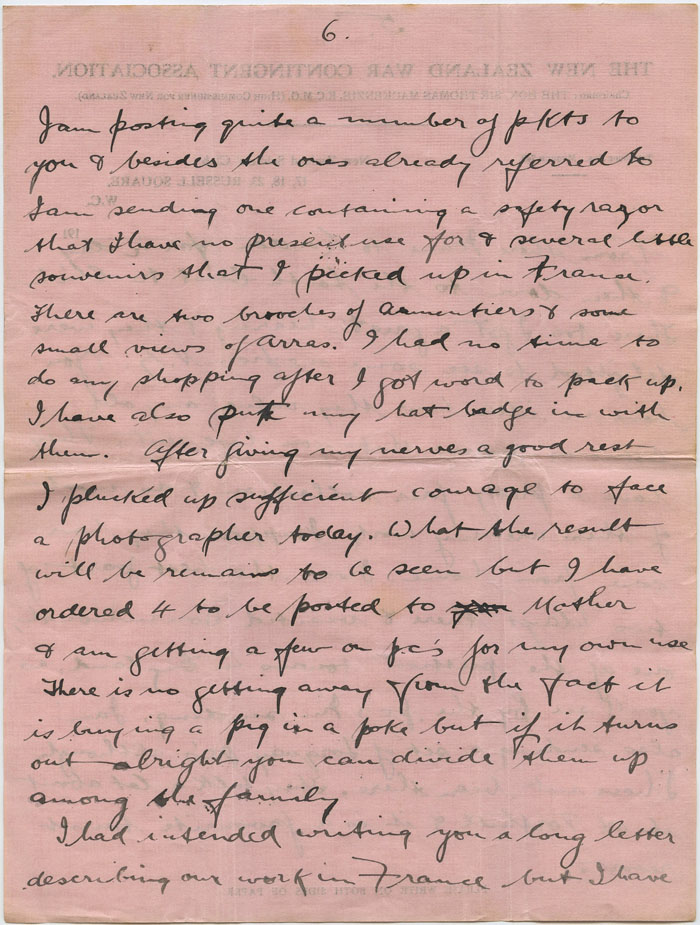 6.
I am posting quite a number of pkts to
you & besides the ones already referred to
I am sending one containing a safety razor
that I have no present use for & several little
souvenirs that I picked up in France.
There are two brooches of Armentiers & some
small views of Arras. I had no time to
do any shopping after I got word to pack up.
I have also put my hat badge in with
them. After giving my nerves a good rest
I plucked up sufficient courage to face
a photographer today. What the result
will be remains to be seen but I have
ordered 4 to be posted to you Mother
& am getting a few on pc's for my own use
There is no getting away from the fact it
is buying a pig in a poke but if it turns
out alright you can divide them up
among the family
I had intended writing you a long letter
describing our work in France but I have
THE NEW ZEALAND WAR CONTINGENT ASSOCIATION.
RUSSELL SQUARE,
W.C.
191
WRITE ON BOTH SIDES OF PAPER